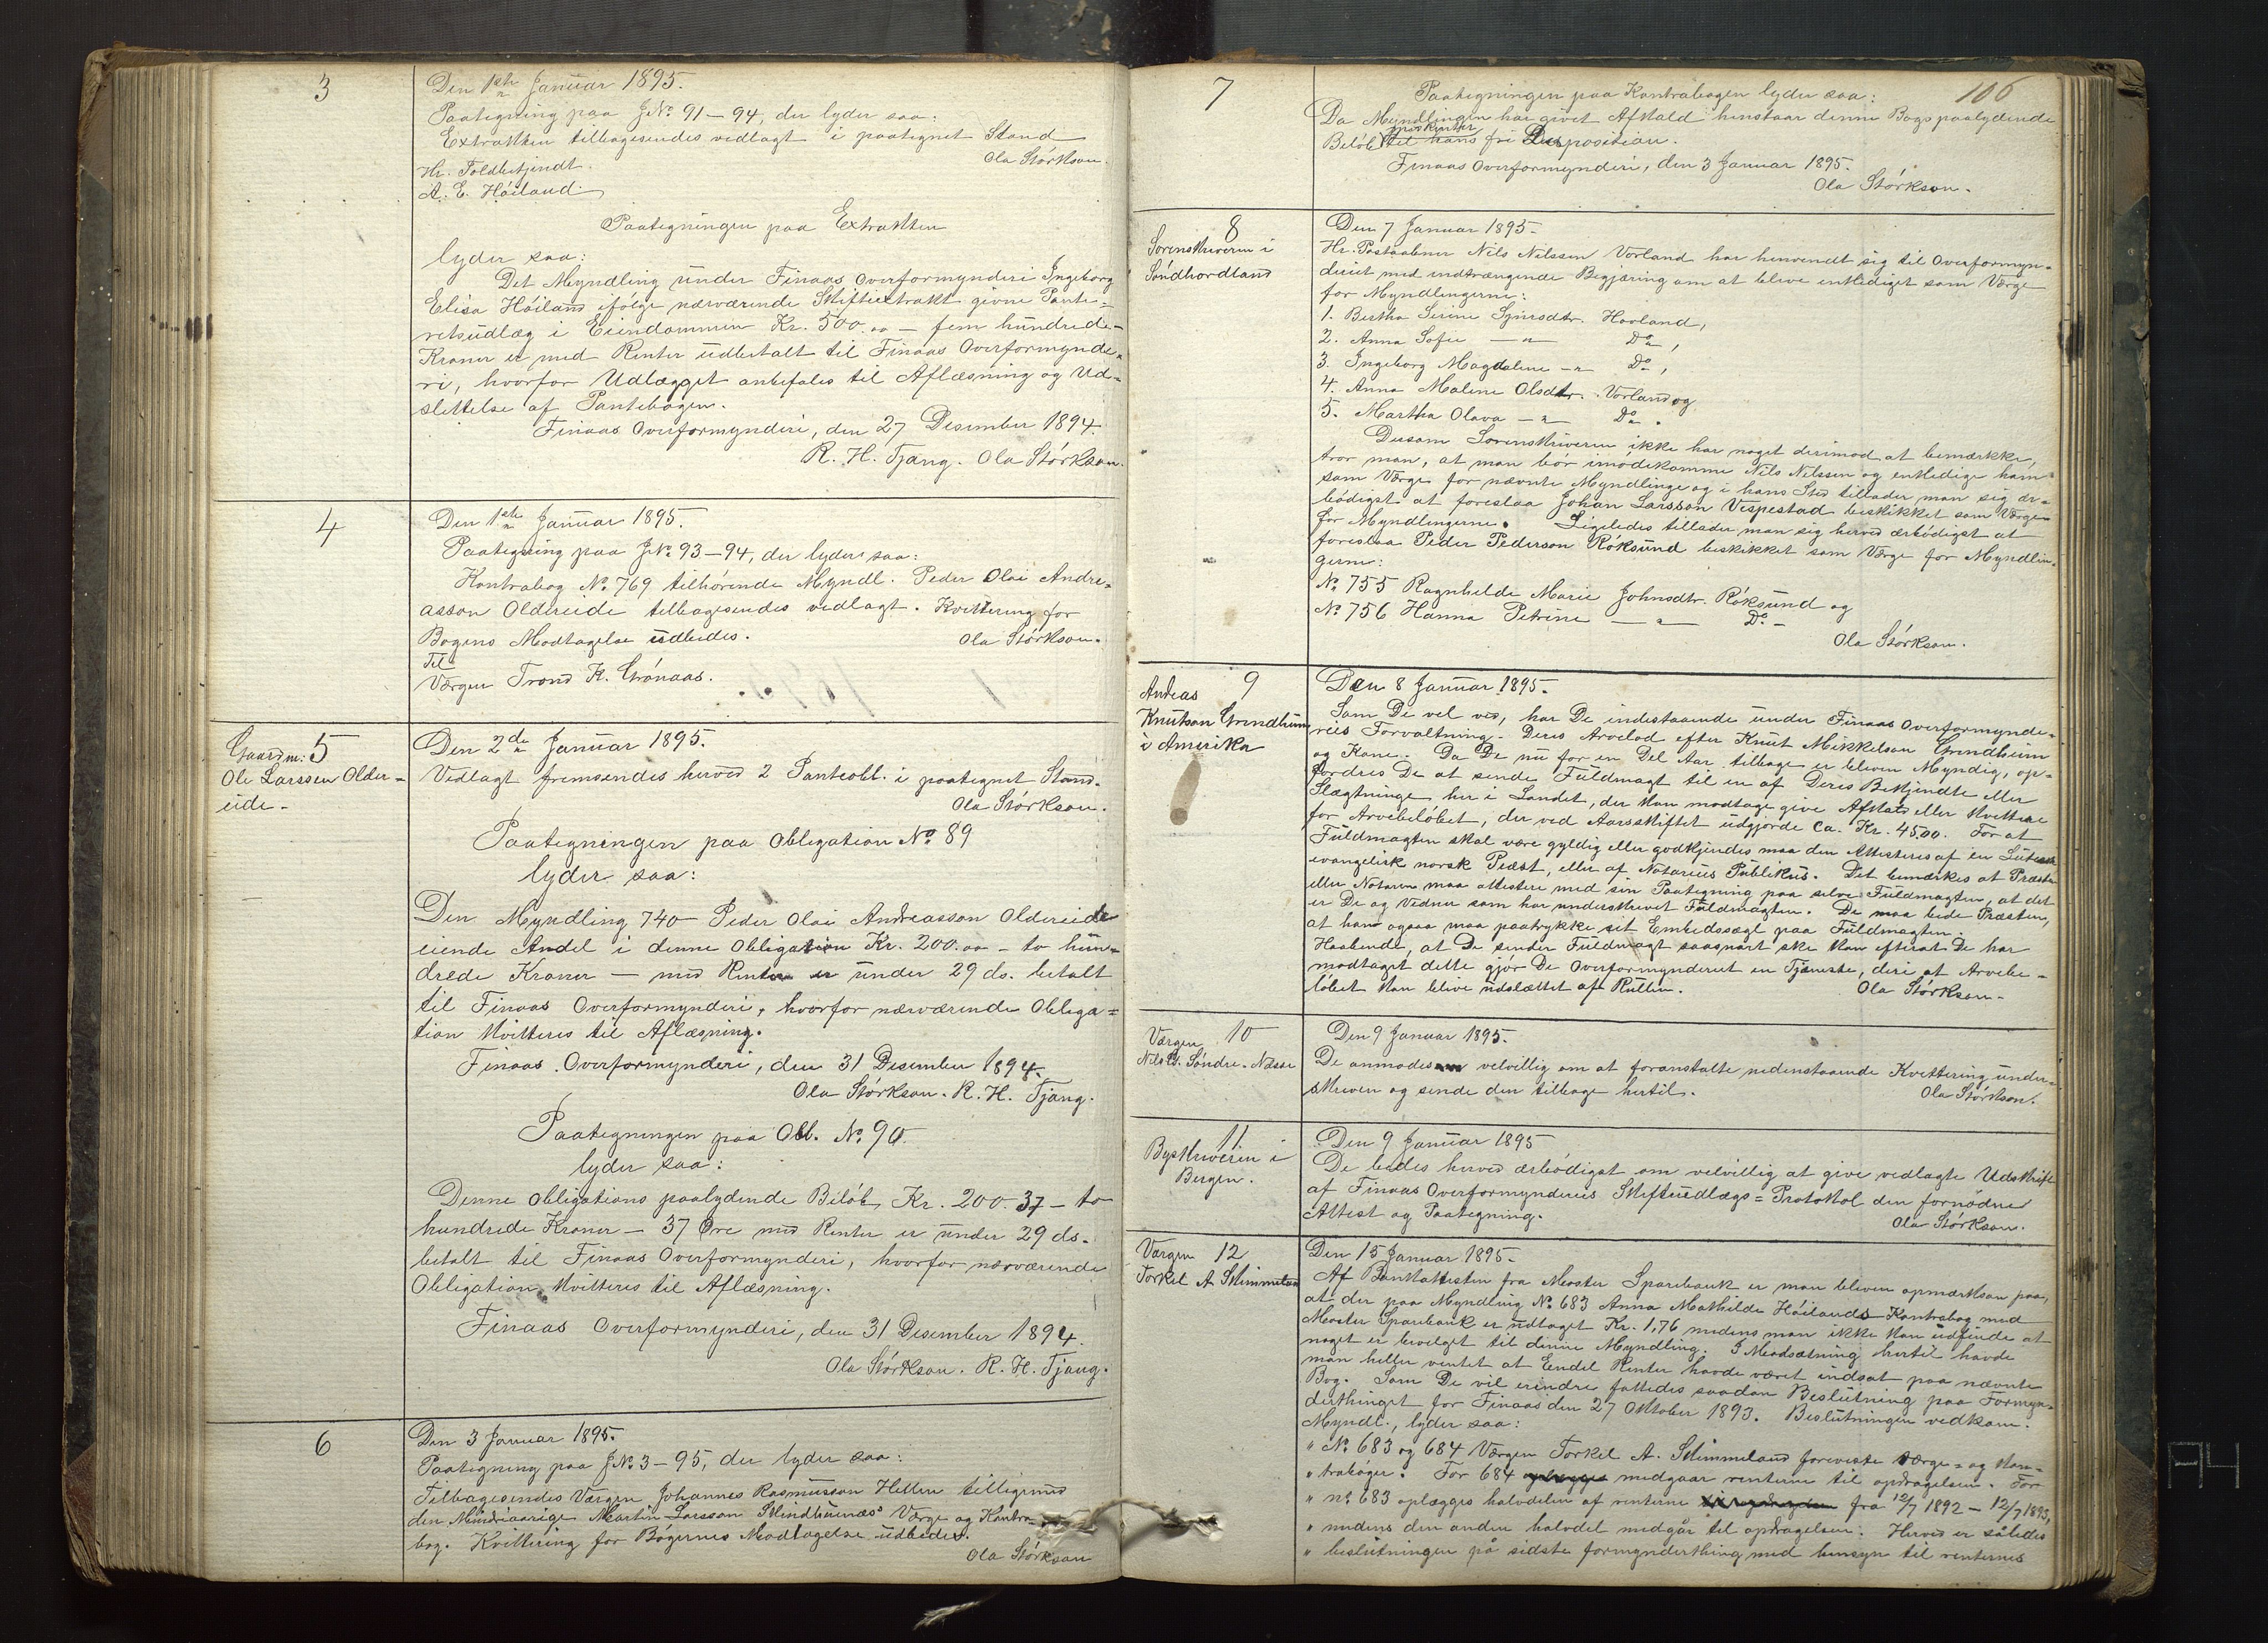 3
Den 1ste Januar 1895.
Paategning paa J.№ 91-94, der lyder saa:
Extrakten tilbagesendes vedlagt i paategnet Stand
Ola Störkson.
Hr. Toldbetjendt
A. E. Höiland
Paategningen paa Extrakten
lyder saa:
Det Myndling under Finaas Overformynderi Ingeborg
Elisa Höiland ifølge nærværende Skifteextrakt givne Pante=
retsudlæg i Eiendommen Kr. 500.00 – fem hundrede
Kroner er med Renter udbetalt til Finaas Overformynde=
ri, hvorfor Udlægget anbefales til Aflæsning og Ud=
slettelse af Pantebogen.
Finaas Overformynderi, den 27 Desember 1894.
R. H. Tjang. Ola Störkson.
4
Den 1ste Januar 1895.
Paategning paa J№ 93-94, der lyder saa:
Kontrabog № 769 tilhørende Myndl. Peder Olai Andre=
asson Oldereide tilbagesendes vedlagt. Kvittering for
Bogens Modtagelse udbedes.
Ola Störkson.
Til
Værgen Trond K. Grönaas.
Gaardm: 5
Ole Larssen Older=
eide.
Den 2de Januar 1895.
Vedlagt fremsendes herved 2 Panteobl. i paategnet Stand.
Ola Störkson.
Paategningen paa Obligation № 89
lyder saa:
Den Myndling 740 Peder Olai Andreasson Oldereide
eiende Andel i denne Obligation Kr. 200.00 – to hun=
drede Kroner – med Renter er under 29 ds. betalt
til Finaas Overformynderi, hvorfor nærværende Obliga=
tion kvitteres til Aflæsning.
Finaas Overformynderi, den 31 Desember 1894.
Ola Störkson. R. H. Tjang.
Paategningen paa Obl. № 90
lyder saa:
Denne Obligations paalydende Beløb Kr. 200.37 – to
hundrede Kroner – 37 Øre med Renter er under 29 ds.
betalt til Finaas Overformynderi, hvorfor nærværende
Obligation kvitteres til Aflæsning.
Finaas Overformynderi, den 31 Desember 1894.
Ola Störkson. R. H. Tjang.
6
Den 3 Januar 1895.
Paategning paa J№ 3-95, der lyder saa:
Tilbagesendes Værgen Johannes Rasmusson Hellen tilligemed
den Mindreaarige Martin Larsson Skindhuenæs' Værge og Kontra=
bog. Kvittering for Bögernes Modtagelse udbedes.
Ola Störkson
106
7
Paategningen paa Kontrabogen lyder saa:
Da Myndlingen har givet Afkald henstaar denne Bogs paalydende
Beløb til hans fri Disposition.
Finaas Overformynderi, den 3 Januar 1895.
Ola Störkson.
8
Sorenskriveren i
Söndhordland
Den 7 Januar 1895.
Hr. Postaabner Nils Nilssen Vorland har henvendt sig til Overformyn=
deriet med indtrængende Begjæring om at blive entlediget som Værge
for Myndlingerne:
1. Bertha Serine Sjursdtr. Havland,
2. Anna Sofie —"— Do,
3. Ingeborg Magdalene —"— Do,
4. Anna Malene Olsdtr. Vorland og
5. Martha Olava —"— Do.
Dersom Sorenskriveren ikke har noget derimod at bemærke,
tror man, at man bör imödekomme Nils Nilssen og entledige ham
som Værge for nævnte Myndlinge og i hans Sted tillader man sig ær=
bödigst at foreslaa Johan Larsson Vespestad beskikket som Værge
for Myndlingerne. Ligeledes tillader man sig herved ærbödigst at
foreslaa Peder Pederson Röksund beskikket som Værge for Myndlin=
gerne:
№ 755 Ragnhilde Marie Johnsdtr. Röksund og
№ 756 Hanna Petrine —"— Do –
Ola Störkson.
9
Andreas
Knutson Grindheim
i Amerika
Den 8 Januar 1895.
Som De vel ved, har De indestaaende under Finaas Overformynde=
ries Forvaltning Deres Arvelod efter Knut Mikkelson Grindheim
og Kone. Da De nu for en Del Aar tilbage er bleven Myndig, op=
fordres De at sende Fuldmagt til en af Deres Bekjendte eller
Slægtninge her i Landet, der kan modtage give Afkald eller kvittere
for Arvebeløbet, der ved Aarsskiftet udgjorde ca. Kr. 4500. For at
Fuldmagten skal være gyldig eller godkjendes maa den Attesteres af en Lutersk
evangelisk norsk Præst, eller af Notarius Publikus. Det bemærkes at Præsten
eller Notaren maa attestere med sin Paategning paa selve Fuldmagten, at det
er De og Vidner som har underskrevet Fuldmagten. De maa bede Præsten,
at han ogsaa maa paatrykke sit Embedssegl paa Fuldmagten.
Haabende, at De sender Fuldmagt saasnart ske kan efterat De har
modtaget dette gjör De Overformynderiet en Tjeneste, deri at Arvebe=
löbet kan blive udslættet af Rullen.
Ola Störkson.
Værgen 10
Nils Söndre-Næsse
Den 9 Januar 1895.
De anmodes velvillig om at foranstalte nedenstaaende Kvittering under=
skreven og sende den tilbage hertil.
Ola Störkson.
11
Byskriveren i
Bergen.
Den 9 Januar 1895
De bedes herved ærbödigst om velvillig at give vedlagte Udskrift
af Finaas Overformynderies Skifteudlægs=Protokol den fornödne
Attest og Paategning.
Ola Störkson.
Værgen 12
Torkel A. Skimmeland
Den 15 Januar 1895.
Af Bankattesten fra Moster Sparebank er man bleven opmærksom paa,
at der paa Myndling № 683 Anna Mathilde Höilands Kontrabog med
Moster Sparebank er udtaget Kr. 1,76 medens man ikke kan udfinde at
noget er bevilget til denne Myndling. I Modsætning hertil havde
man heller ventet at Endel Renter havde været indsat paa nævnte
Bog. Som De vil erindre fattedes saadan Beslutning paa Formyn=
derthinget for Finaas den 27 Oktober 1893. Beslutningen vedkom.
Myndl., lyder saa:
" № 683 og 684 Værgen Torkel A. Skimmeland foreviste Værge= og Kon=
" traböger. For 684 medgaar renterne til opdragelsen. For
" n° 683 oplægges halvdelen af renterne fra 12/7 1892 – 12/7 1893,
" medens den anden halvdel medgår til opdragelsen. Herved er således
" beslutningen på sidste formynderthing med hensyn til renternes